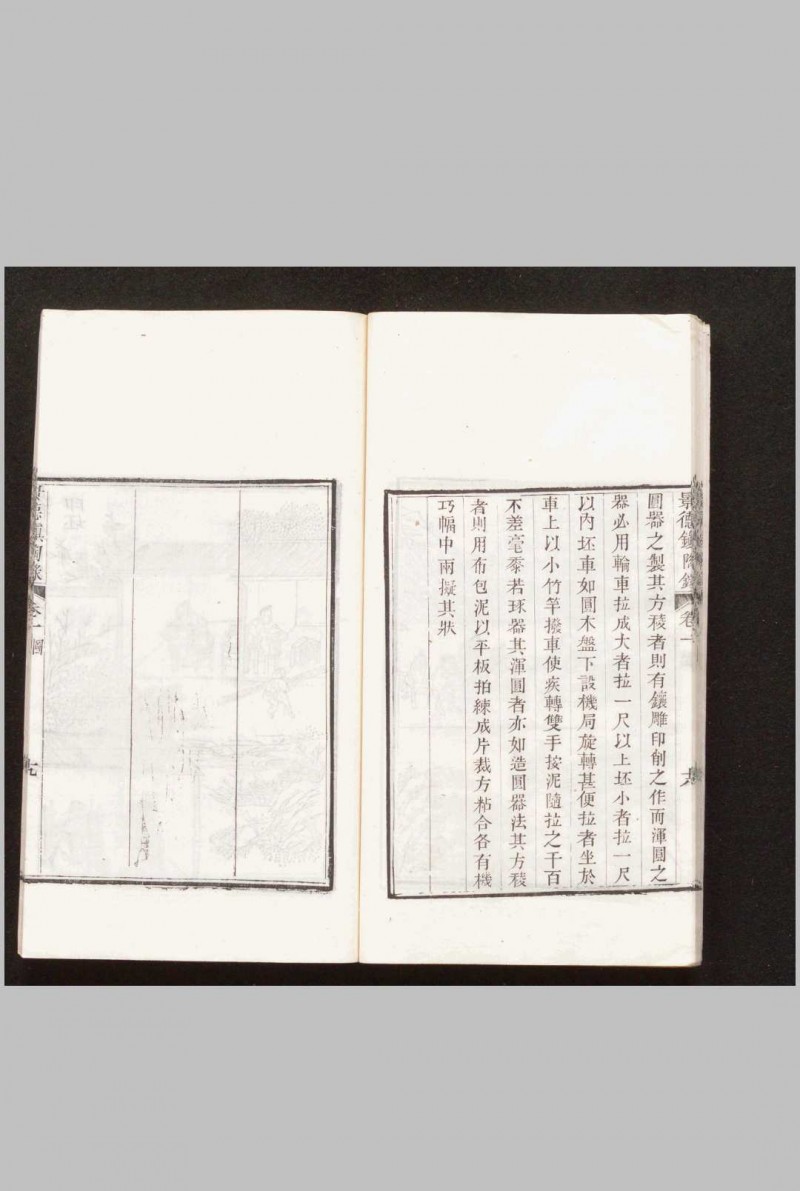 景德鎮陶錄 卷一
六
圓器之製其方稜者則有鑲雕印削之作而渾圓之
器必用輪車拉成大者拉一尺以上坯小者拉一尺
以內坯車如圓木盤下設機局旋轉甚便拉者坐於
車上以小竹竿撥車使疾轉雙手按泥隨拉之千百
不差毫黍若琢器其渾圓者亦如造圓器法其方稜
者則用布包泥以平板拍練成片裁方粘合各有機
巧幅中兩擬其狀
景德鎮陶錄 卷一 圖
七
印坯